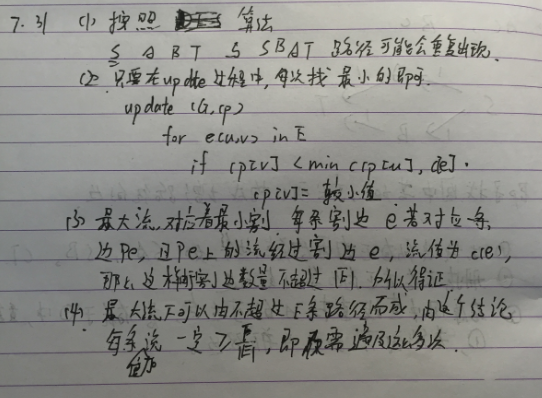 7.31 (1) 按照 算法
S A B T 与 SBAT 路径可能会重复出现.
(2) 只要在update过程中,每次找最小的即可.
update (G,cp)
for e(u,v) in E
if cp[v] < min (cp[u], Ce].
cp[v]= 较小值
(3) 最大流,对应着最小割 每条割边 e 若对应一条
边Pe, 且Pe上的流经过割边e, 流值为c(e),
那么这样割边数量不超过|E|. 所以得证
(4) 最大流F可以由不超过E条路径而成,由这个结论
每条流 一定 ≥ F/|E|, 即 需遍历这么多次.
值为